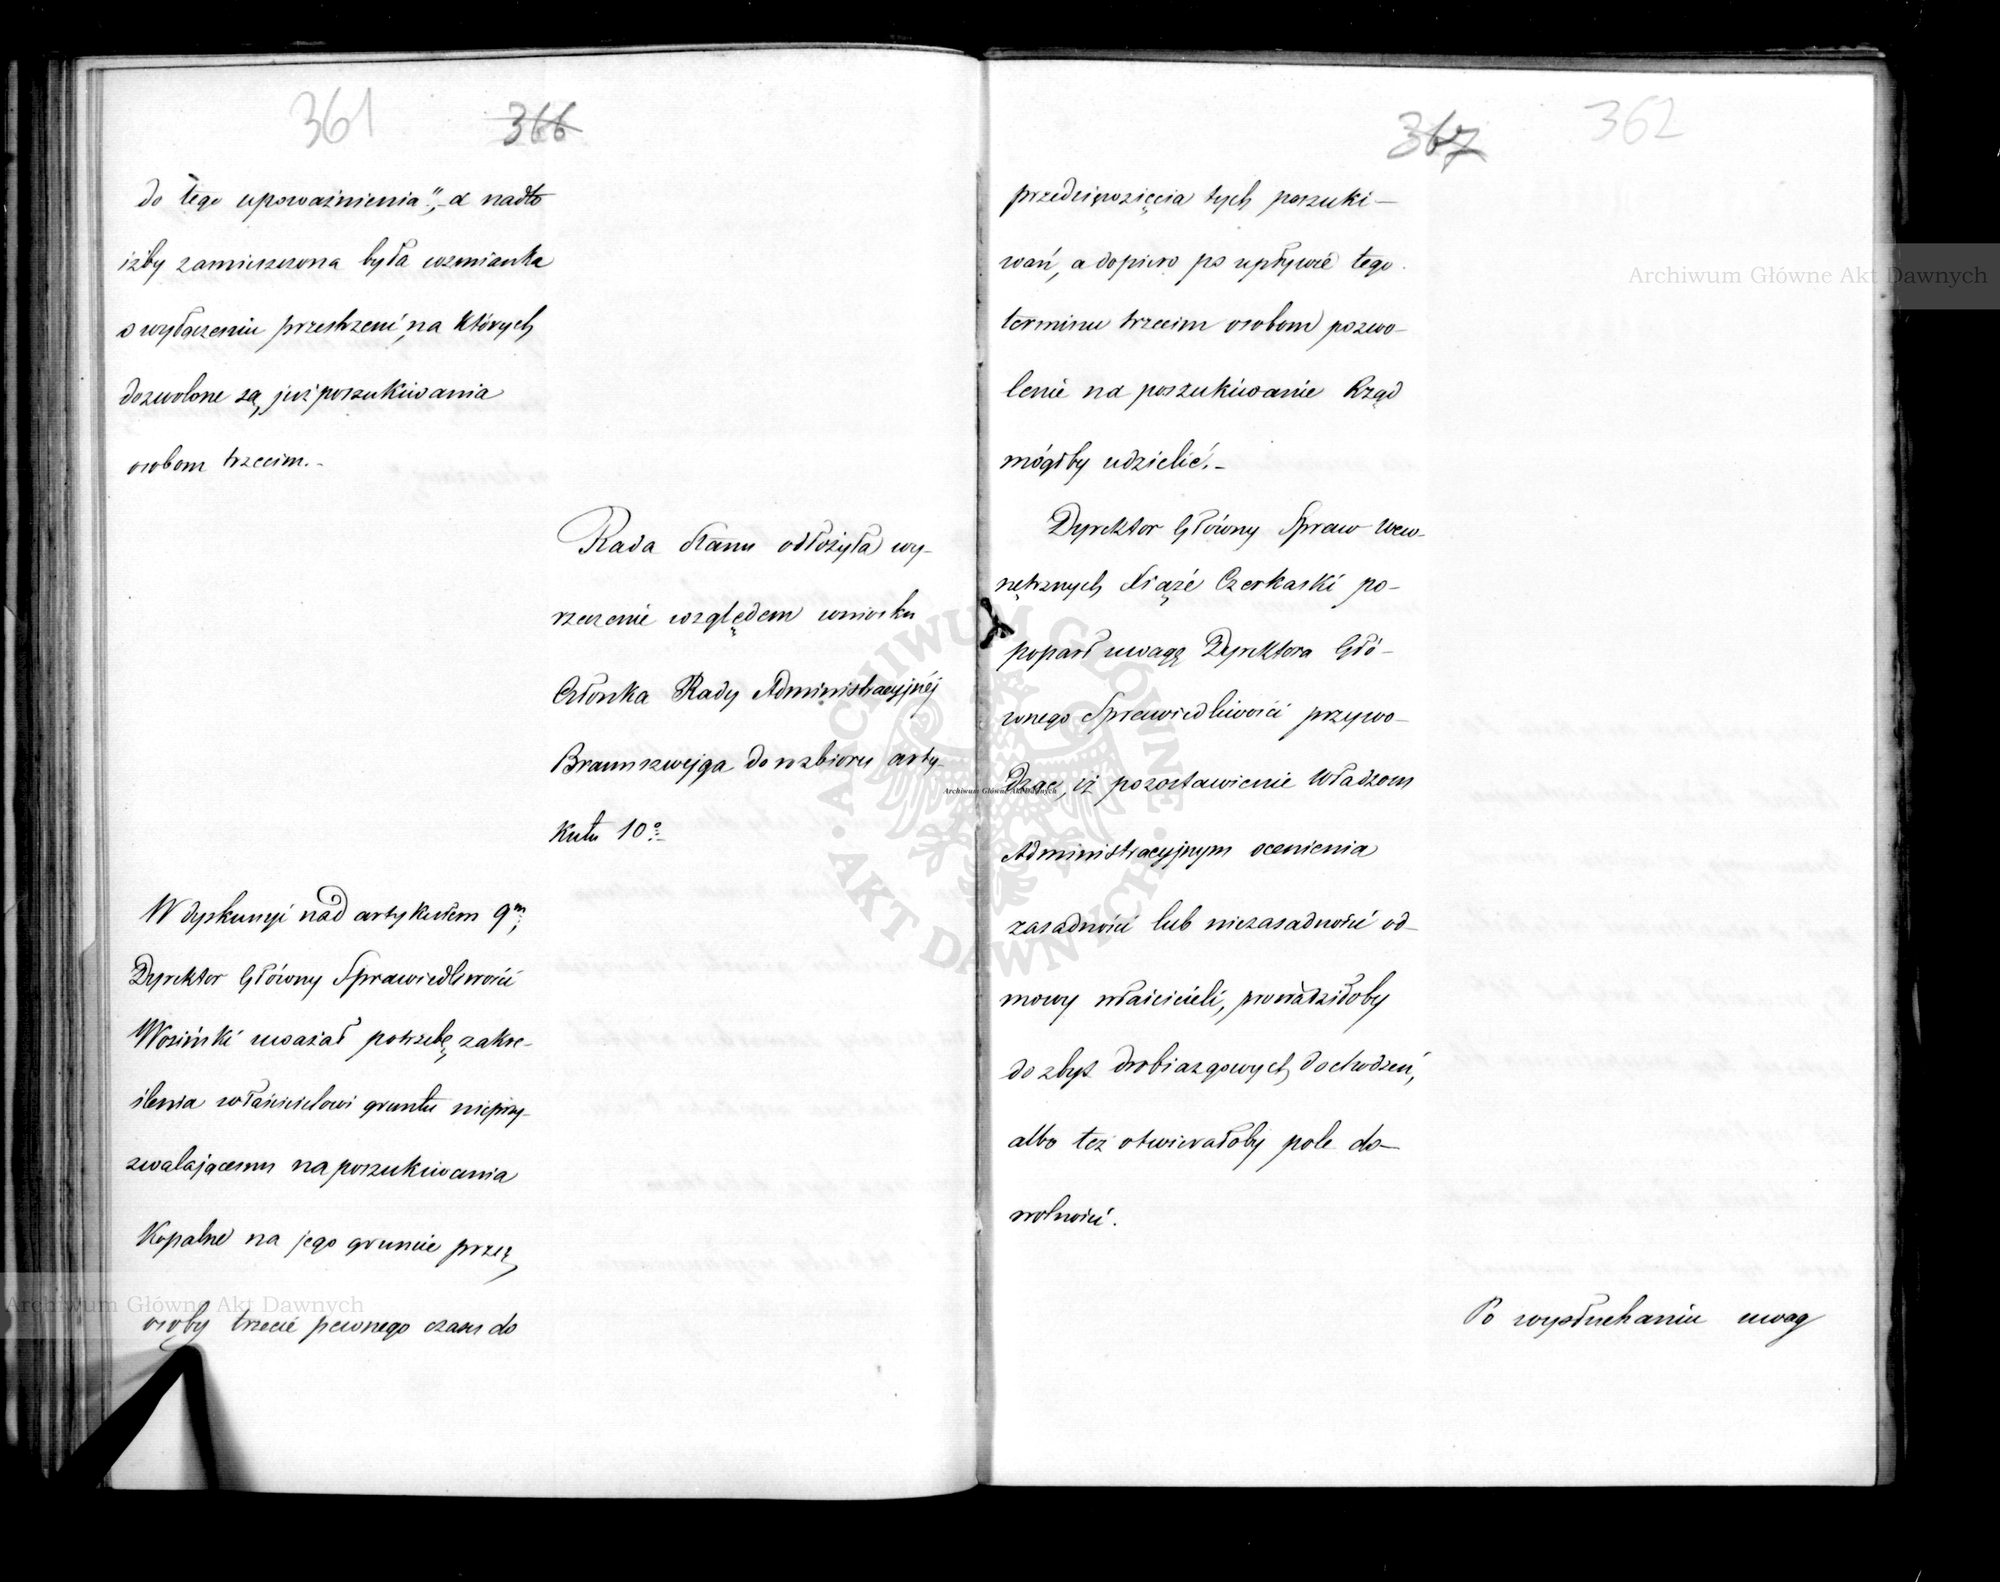 361
366
do tego upoważnienia", a nadto
iżby zamieszczona była wzmianka
o wyłączeniu przestrzeni, na których
dozwolone są już poszukiwania
osobom trzecim.-
Rada Stanu odłożyła wy-
rzeczenie względem wniosku
Członka Rady Administracyjnéj
Braunszwejga do rozbioru arty-
kułu 10o
W dyskusyi nad artykułem 9m,
Dyrektor Główny Sprawiedliwości
Wosiński uważał potrzebę zakre-
ślenia właścicielowi gruntu nieprzy-
zwalającemu na poszukiwania
Kopalne na jego gruncie przez
osoby trzecie pewnego czasu do
367
362
przedsięwzięcia tych poszuki-
wań, a dopiero po upływie tego
terminu trzecim osobom pozwo-
lenie na poszukiwanie Rząd
mógłby udzielić.-
Dyrektor Główny Spraw Wew-
nętrznych Xiąże Czerkaski po-
poparł uwagę Dyrektora Głó-
wnego Sprawiedliwości przywo-
dząc, iż pozostawienie Władzom
Administracyjnym ocenienia
zasadności lub niezasadności od-
mowy właścicieli, prowadziłoby
do zbyt drobiazgowych dochodzeń,
albo też otwierałoby pole do-
wolności.
Po wysłuchaniu uwag
Archiwum Główne Akt Dawnych
Archiwum Główne Akt Dawnych
Archiwum Główne Akt Dawnych
ARCHIWUM GŁÓWNE
AKT DAWNYCH